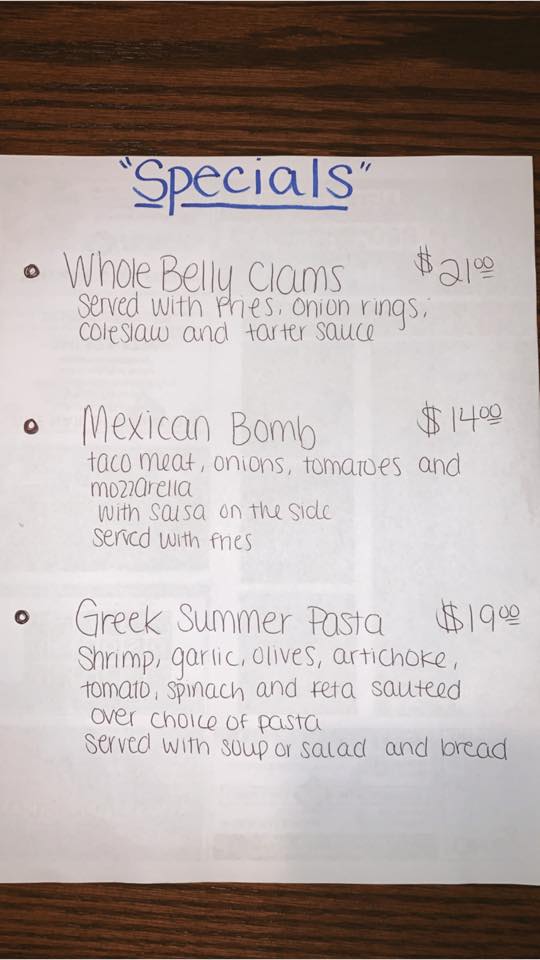 "Specials"
Whole Belly Clams $21.00
served with fries, onion rings,
coleslaw and tarter sauce
Mexican Bomb $14.00
taco meat, onions, tomatoes and
mozzarella
with salsa on the side
served with fries
Greek Summer Pasta $19.00
Shrimp, garlic, olives, artichoke,
tomato, spinach and feta sauteed
over choice of pasta
served with soup or salad and bread